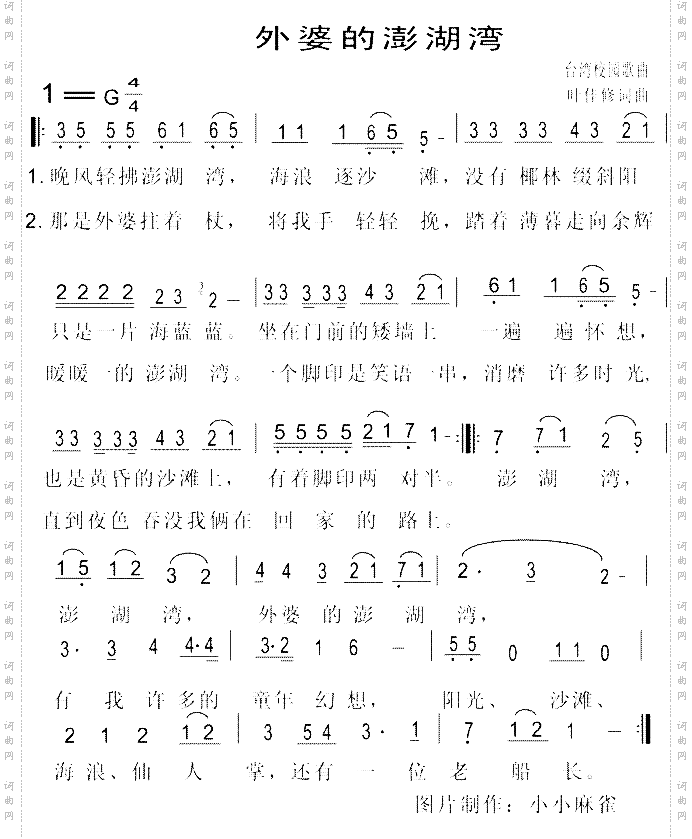 外婆的澎湖湾
台湾校园歌曲
1=G 4/4
叶佳修词曲
3 5 5 5 6 1 6 5 | 1 1 1 6 5 5 - | 3 3 3 3 4 3 2 1
1. 晚风轻拂澎湖 湾， 海浪 逐沙 滩，没有 椰林 缀斜阳
2. 那是外婆拄着 杖， 将我手 轻轻 挽，踏着 薄暮走向余辉
2 2 2 2 2 3 3 2 - | 3 3 3 3 3 4 3 2 1 | 6 1 1 6 5 5 -
只是一片 海蓝 蓝。 坐在门前的矮墙上 一遍 遍 怀 想，
暖暖 一的 澎湖 湾。一个脚印是笑语 一串，消磨 许多时 光，
3 3 3 3 3 4 3 2 1 | 5 5 5 5 2 1 7 1 - :| 7 7 1 2 5
也是黄昏的沙滩上， 有着脚印两 对半。 澎 湖 湾，
直到夜色 吞没我俩在 回 家 的 路上。
1 5 1 2 3 2 | 4 4 3 2 1 7 1 | 2 · 3 2 - |
澎 湖 湾， 外婆 的 澎 湖 湾，
3 · 3 4 4 · 4 | 3 · 2 1 6 - | 5 5 0 1 1 0 |
有 我 许 多的 童年 幻 想， 阳光、 沙滩、
2 1 2 1 2 | 3 5 4 3 · 1 | 7 1 2 1 - :|
海 浪、仙 人 掌，还有 一 位 老 船 长。
图片制作：小小麻雀
词曲网